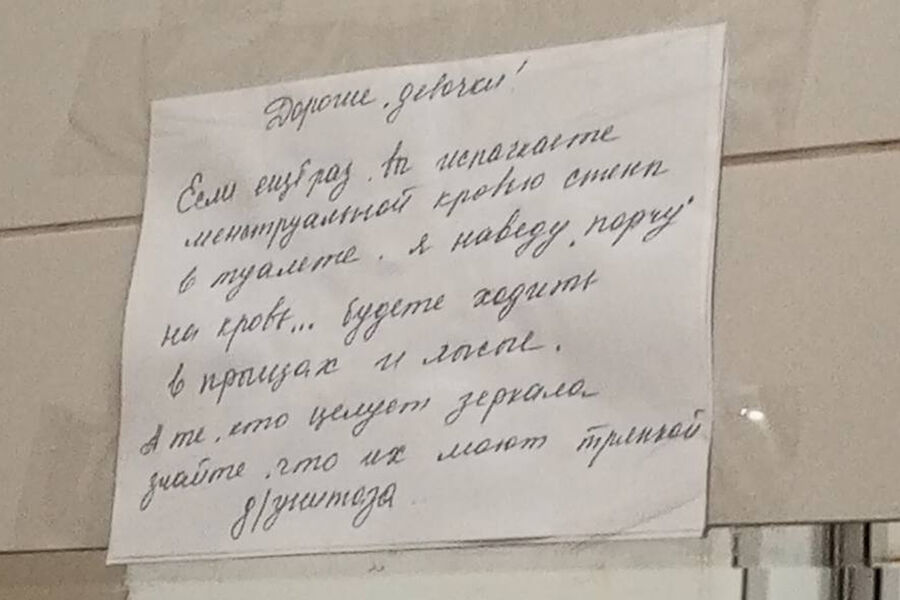 Дорогие, девочки!
Если ещё раз, вы испачкаете
менструальной кровью стены
в туалете. я наведу "порчу"
на кровь... будете ходить
в прыщах и лысые.
А те, кто целует зеркала
знайте, что их моют тряпкой
д/унитаза